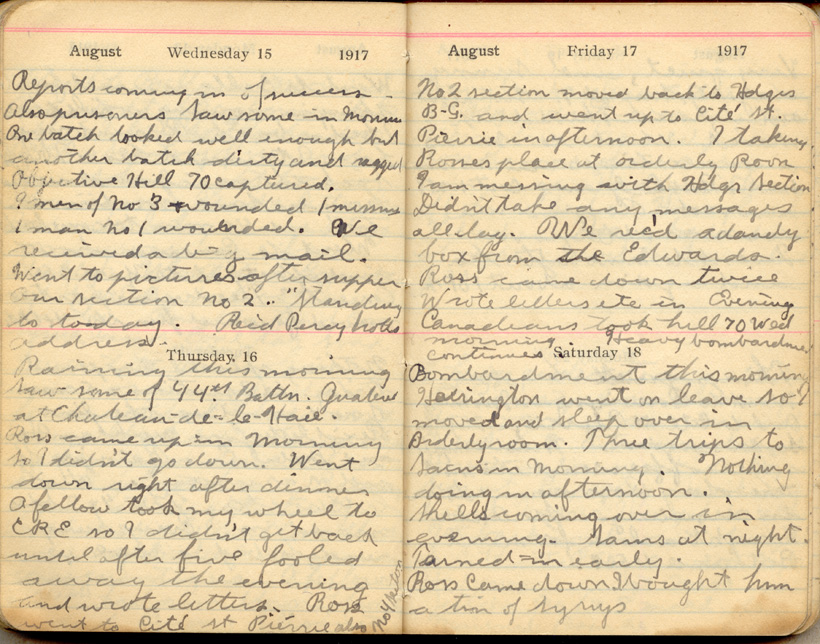 August Wednesday 15 1917
Reports coming in of success -
Also prisoners saw some in
One batch looked well enough but
another batch dirty and ragged
Objective Hill 70 captured.
men of No 3 wounded 1 missing
1 man No 1 wounded. We
received a big mail.
Went to pictures after supper
Our section No 2. "Standing
to today. Reid Percy
address.
Thursday, 16
Raining this morning
Saw some of 44th Battn.
at Chateau-de-la-Haie.
Ross came up in Morning
so I didn't go down. Went
down right after dinner
A fellow took my wheel to
so I didn't get back
until after five fooled
away the evening
and wrote letters. Ross
went to Cité St Pierrie also
No 4 section
August Friday 17 1917
No 2 section moved back to Hdqs
B-G. and went up to Cité St.
Pierrie in afternoon. I taking
Rosses place at orderly Room
I am messing with Hdqr Section
Didn't take any messages
all day. We rec'd a dandy
box from the Edwards.
Ross came down twice
Wrote letters etc in Evening
Canadians took hill 70 Wed
morning. Heavy bombardment
continues.
Saturday 18
Bombardment this morning
went on leave so I
moved and sleep over in
Orderly room. Three trips to
in Morning. Nothing
doing in afternoon.
Shells coming over in
evening. at night.
Turned-in early.
Ross came down I bought him
a tin of syrup